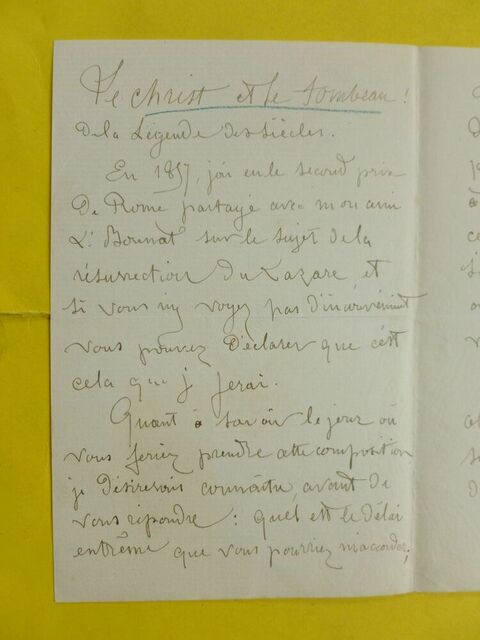 Le Christ et le Tombeau !
De la Légende des Siècles.
En 1857, j'ai eu le second prix
De Rome partagé avec mon ami
Ln Bonnat sur le sujet de la
résurrection du Lazare et
si vous n'y voyez pas d'inconvénient
vous pouvez Déclarer que c'est
cela que je ferai.
Quant à savoir le jour où
vous feriez prendre cette composition
je Désirerais connaître, avant de
vous répondre : quel est le délai
extrême que vous pourriez m'accorder ;